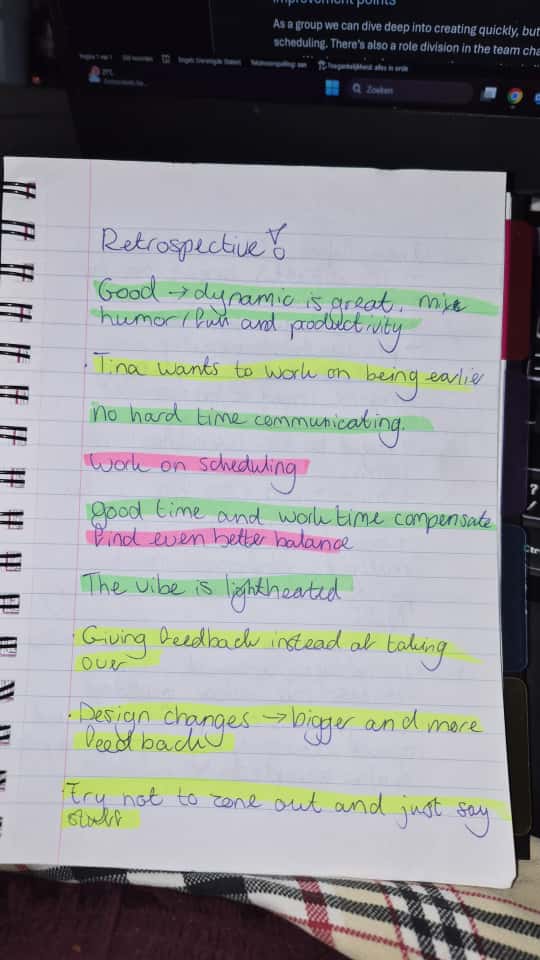 improvement points
As a group we can dive deep into creating quickly, but
scheduling. There's also a role division in the team cha
Pagina 1 van 1
Engels (Verenigde Staten)
Tekstvoorspelling: aan
Toegankelijkheid: alles in orde
21°C
Zoeken
Retrospective!
Good → dynamic is great, mix
humor/fun and productivity
· Tina wants to work on being earlier
no hard time communicating.
Work on scheduling
good time and work time compensate
Find even better balance
The vibe is lighthearted
· Giving feedback instead of taking
over
· Design changes → bigger and more
feedback
· Try not to zone out and just say
stuff